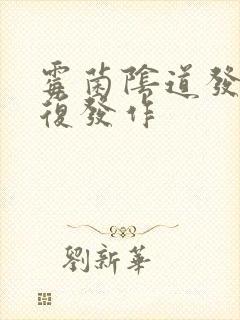 霉菌陰道發
復發作
劉新華